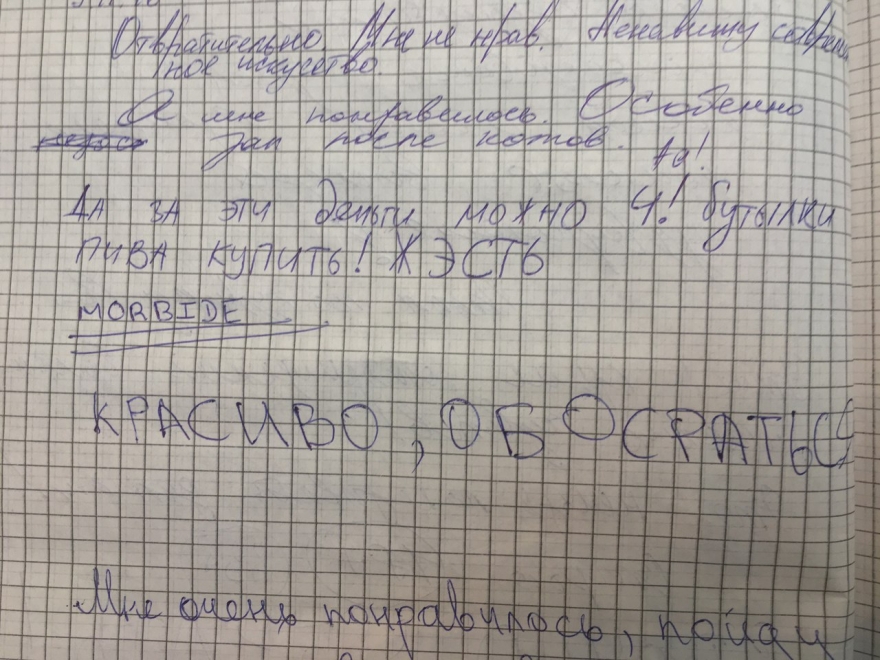 Отвратительно. Мне не нрав. Ненавижу современ
ное искусство.
А мне понравилось. Особенно
зал после котов.
Да!
ДА ЗА ЭТИ деньги МОЖНО 4! бутылки
ПИВА КУПИТЬ! ЖЭСТЬ
MORBIDE
КРАСИВО, ОБОСРАТЬСЯ
Мне очень понравилось, пойду